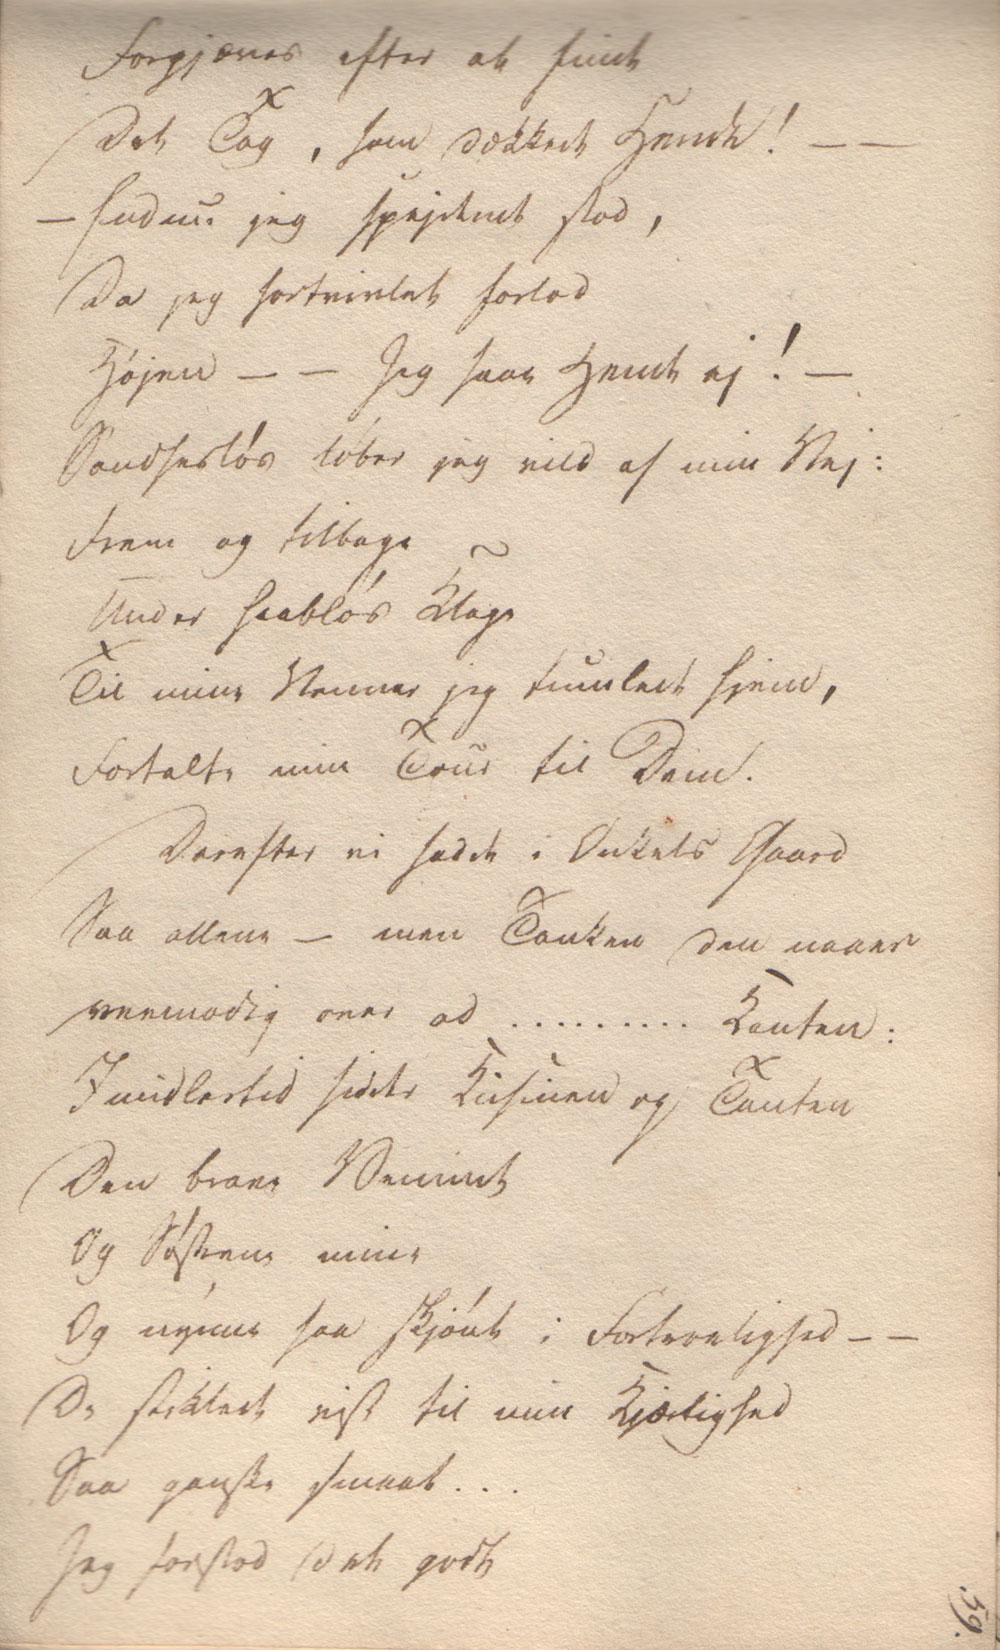 Forgjæves efter at finde
Det Tag, som dækkede Hende! — —
— Endnu jeg spejdende stod,
Da jeg fortvivlet forlod
Højen — — Jeg saae Hende ej! —
Sandhesløs løber jeg vild af min Vej:
Frem og tilbage
Under haabløs Klage
Til mine Venner jeg tumlede hjem,
Fortalte min Tour til Dem.
Derefter vi sadde i Onkels Gaard
Saa allene — men Tanken den naaer
veemodig over ad ......... Kanten:
Imidlertid sidde Kusinen og Tanten
Den brave Veninde
Og Søstrene mine
Og nynne saa skjønt i Fortrolighed — —
De stiklede vist til min Kjærlighed
Saa ganske smaat...
Jeg forstod det godt
59.